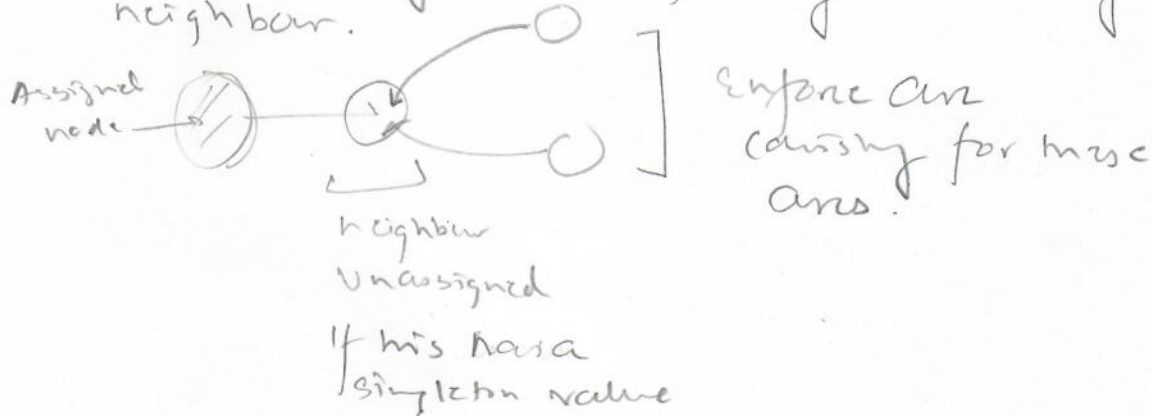 neighbour.
Assigned
node
Enforce arc
consisty for these
arcs.
neighbour
Unassigned
If this has a
singleton value